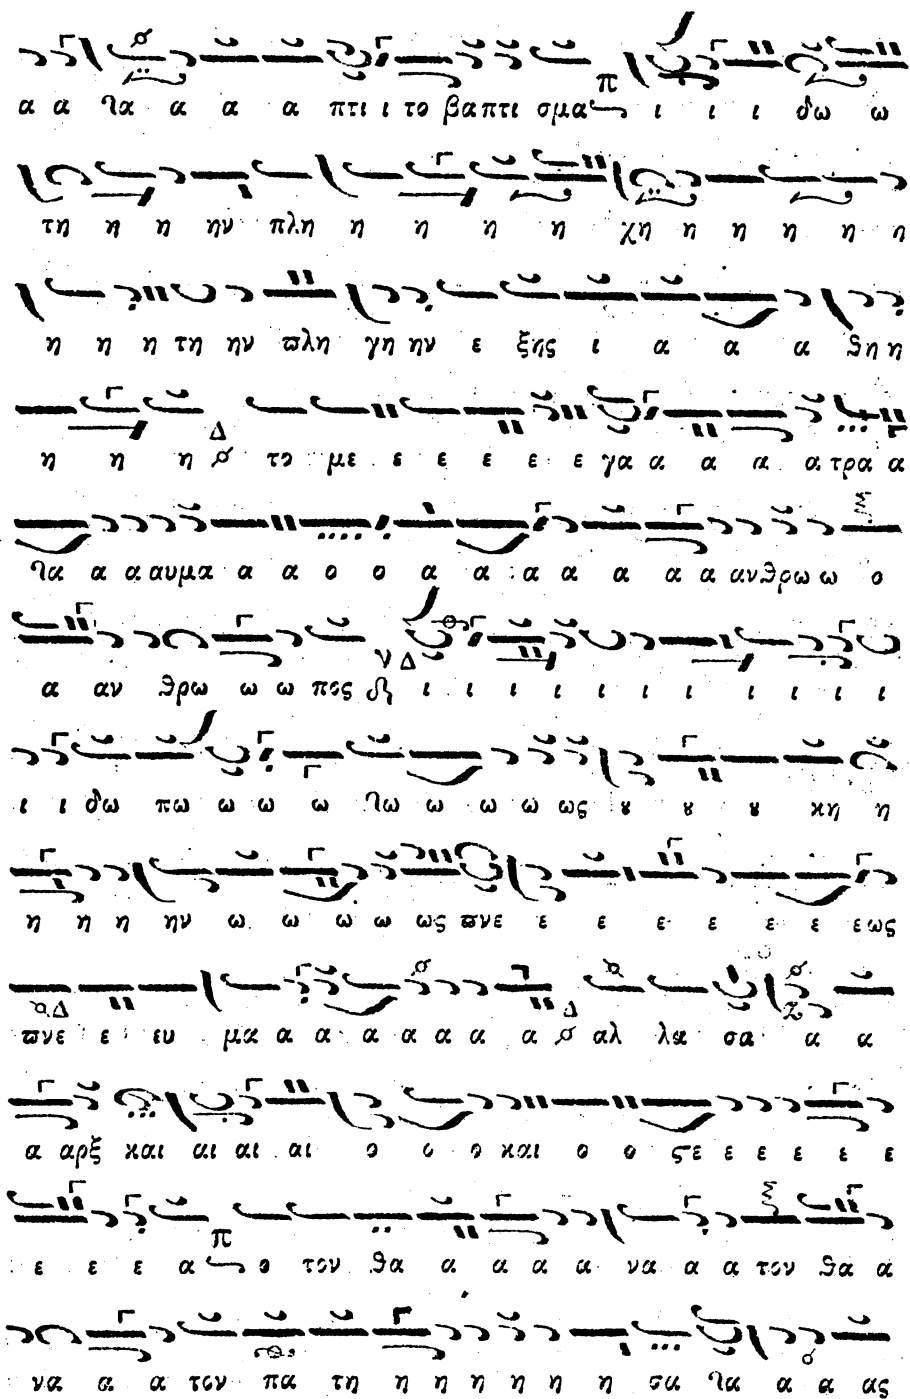 α α τα α α α πτι ι το βαπτι σμα ι ι ι δω ω
τη η η ην πλη η η η η χη η η η η η
η η η τη ην πλη γη ην ε ξης ι α α α θη η
η η η το με ε ε ε ε ε γα α α α α τρα α
τα α α αυμα α α ο ο α α α α α α α ανθρω ω ο
α αν θρω ω ω πος ι ι ι ι ι ι ι ι ι ι ι
ι ι δω πω ω ω ω τω ω ω ω ως ȣ ȣ ȣ κη η
η η η ην ω ω ω ω ως πνε ε ε ε ε ε ε εως
πνε ε ευ μα α α α α α α α αλ λα σα α α
α αρξ και αι αι αι ο ο ο και ο ο ϛε ε ε ε ε ε
ε ε ε α ο τον θα α α α α να α α τον θα α
να α α τον πα τη η η η η η η σα τα α α ας